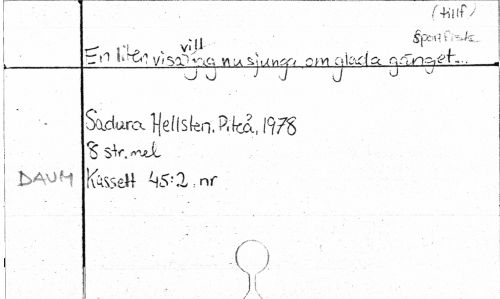 (tillf)
Sportfiske
En liten visa vill jag nu sjunga, om glada gänget...
Sadura Hellsten. Piteå, 1978
8 str. mel
DAUM Kassett 45:2, nr